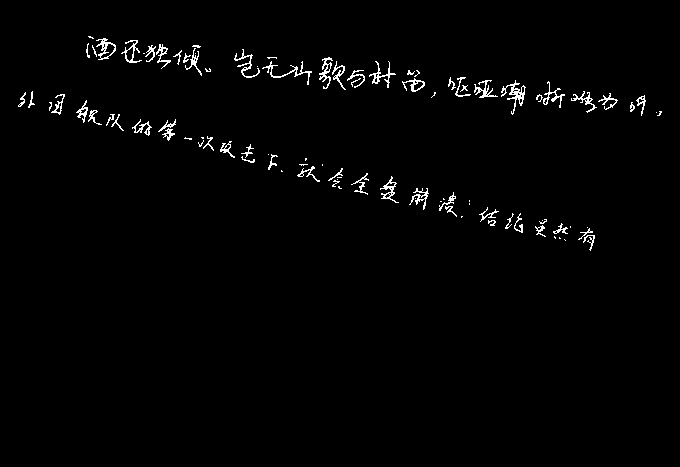 酒还独倾。岂无山歌与村笛，呕哑嘲哳难为听。
外国舰队的第一次攻击下、就会全盘崩溃.结论虽然有